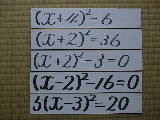 (x+4)²=6
(x+2)²=36
(x+2)²-3=0
(x-2)²-16=0
5(x-3)²=20